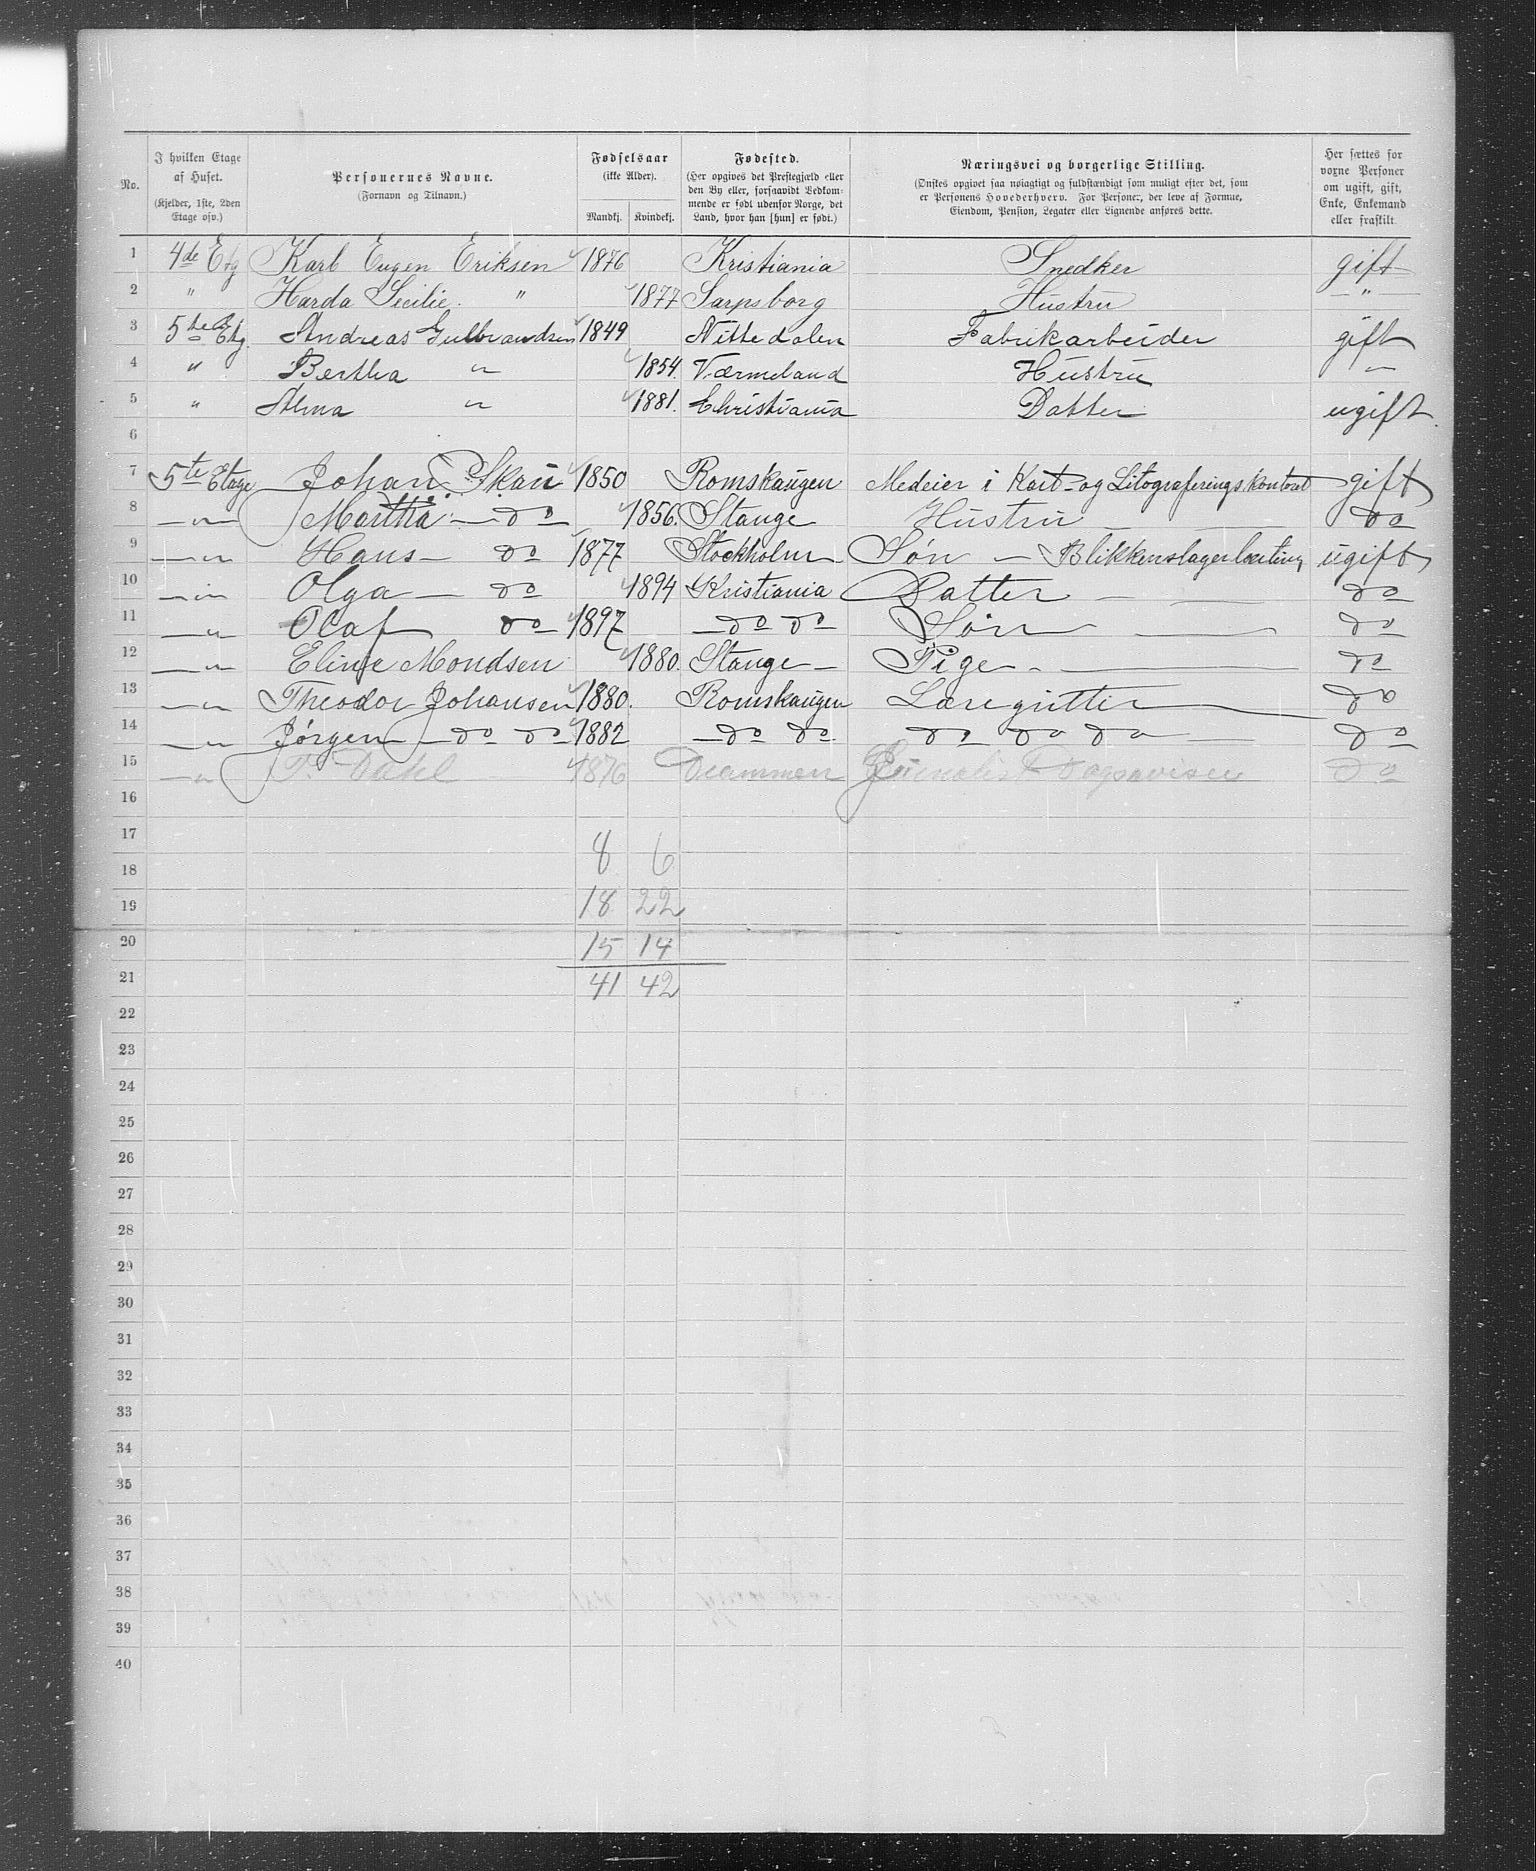 No. | I hvilken Etage af Huset. (Kjelder, 1ste, 2den Etage osv.) | Personernes Navne. (Fornavn og Tilnavn.) | Fødselsaar (ikke Alder). Mandkj. | Kvindekj. | Fødested. (Her opgives det Prestegjæld eller den By eller, forsaavidt Vedkommende er født udenfor Norge, det Land, hvor han [hun] er født.) | Næringsvei og borgerlige Stilling. (Ønskes opgivet saa nøiagtigt og fuldstændigt som muligt efter det, som er Personens Hovederhverv. For Personer, der leve af Formue, Eiendom, Pension, Legater eller Lignende anføres dette. | Her sættes for voxne Personer om ugift, gift, Enke, Enkemand eller fraskilt.
1 4de Etg Karl Eugen Eriksen 1876 Kristiania Snedker gift
2 " Harda Secilie. " 1877 Sarpsborg Hustru — " —
3 5te Etg. Andreas Gulbrandsen 1849 Nittedalen Fabrikarbeider gift
4 " Bertha " 1854. Værmeland Hustru "
5 " Alma " 1881. Christiania Datter ugift.
6
7 5te Etage Johan Skau 1850 Romskaugen Medeier i Kart- og Litograferingskontoret gift
8 — " — Martha — do 1856. Stange Hustru — do
9 — " Hans — do 1877 Stockholm Søn — Blikkenslagerlærling ugift
10 — " — Olga — do 1894 Kristiania Datter — do
11 — " Olaf do 1897 — do do Søn — do
12 — " Eline Mondsen 1880. Stange — Pige — do
13 — " Theodor Johansen 1880. Romskaugen Læregutter do
14 — " Jørgen — do do 1882 — do do do do do — do
15 — " T. Dahl 1876 Drammen Journalist Dagsavisen do
16
17 8 6
18
19 18 22
20 15 14
21 41 42
22
23
24
25
26
27
28
29
30
31
32
33
34
35
36
37
38
39
40